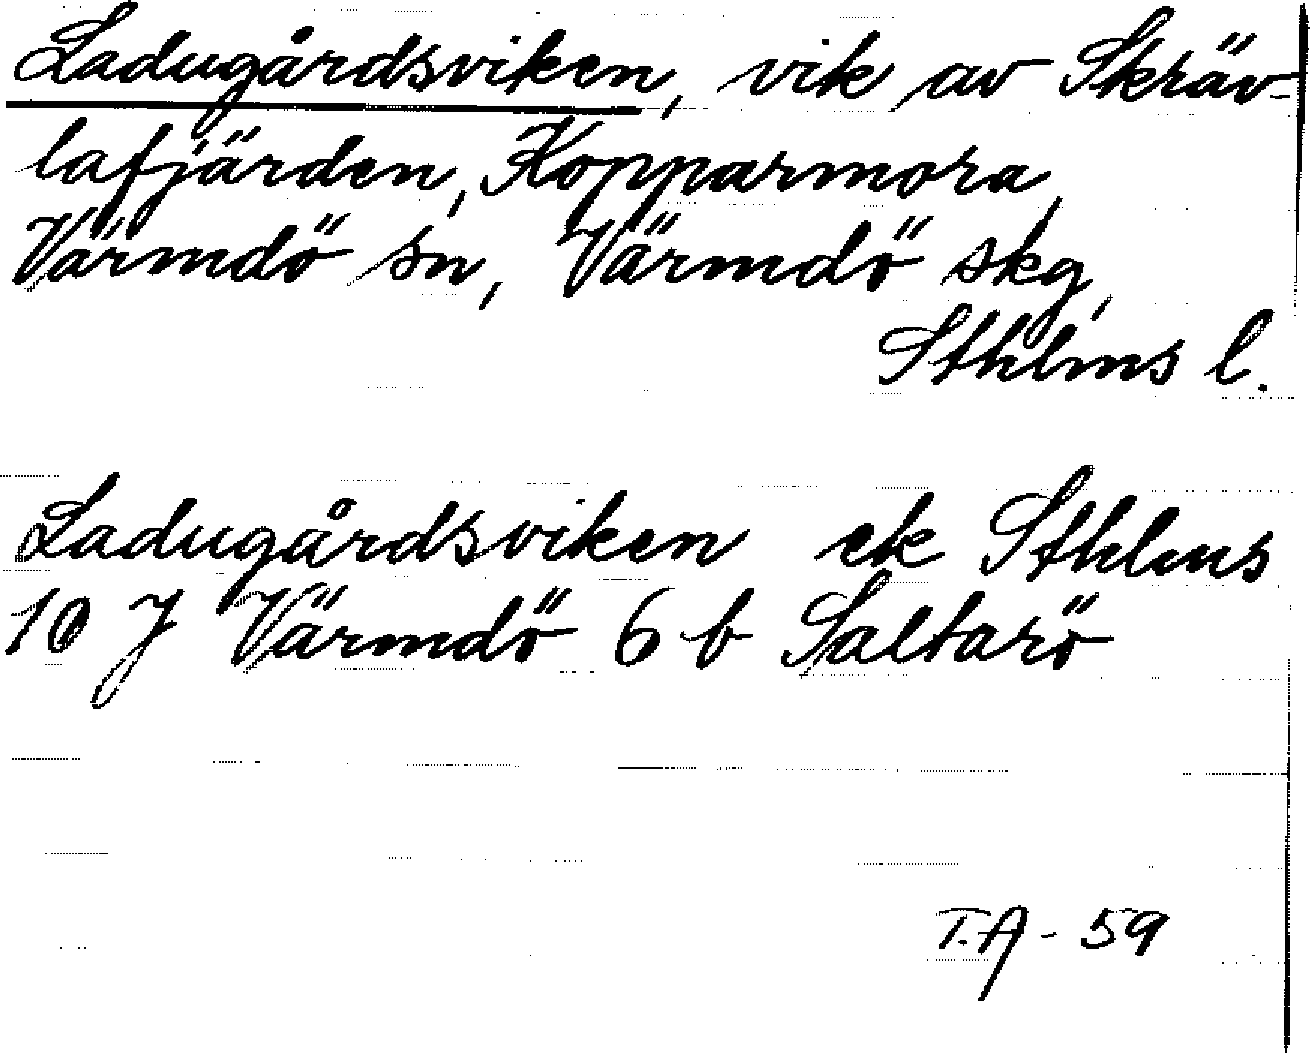 Ladugårdsviken, vik av Skräv-
lafjärden, Kopparmora,
Värmdö sn, Värmdö skg,
Sthlms l.
Ladugårdsviken ek Sthlms
10 J Värmdö 6 b Saltarö
T.A - 59